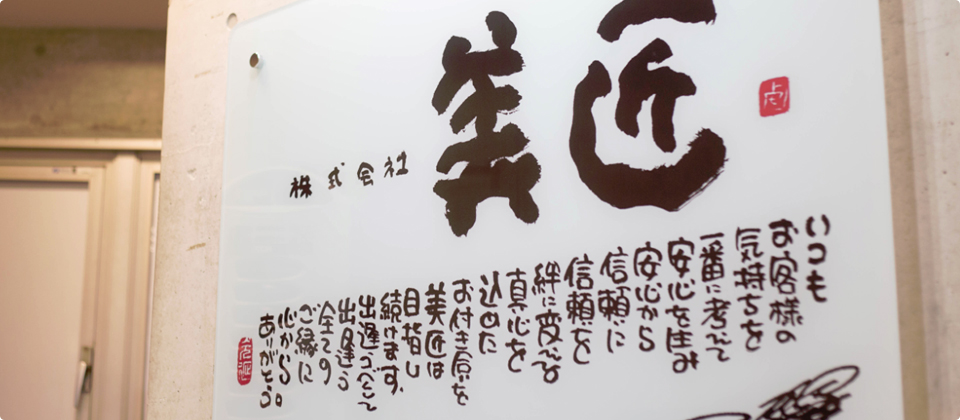 株式会社
美匠
いつも
お客様の
気持ちを
一番に考えて
安心を生み
安心から
信頼に
信頼を
絆に変える
真心を
込めた
お付き愛を
美匠は
目指し
続けます。
出逢うべくして
出逢う
全ての
ご縁に
心から。
ありがとう。